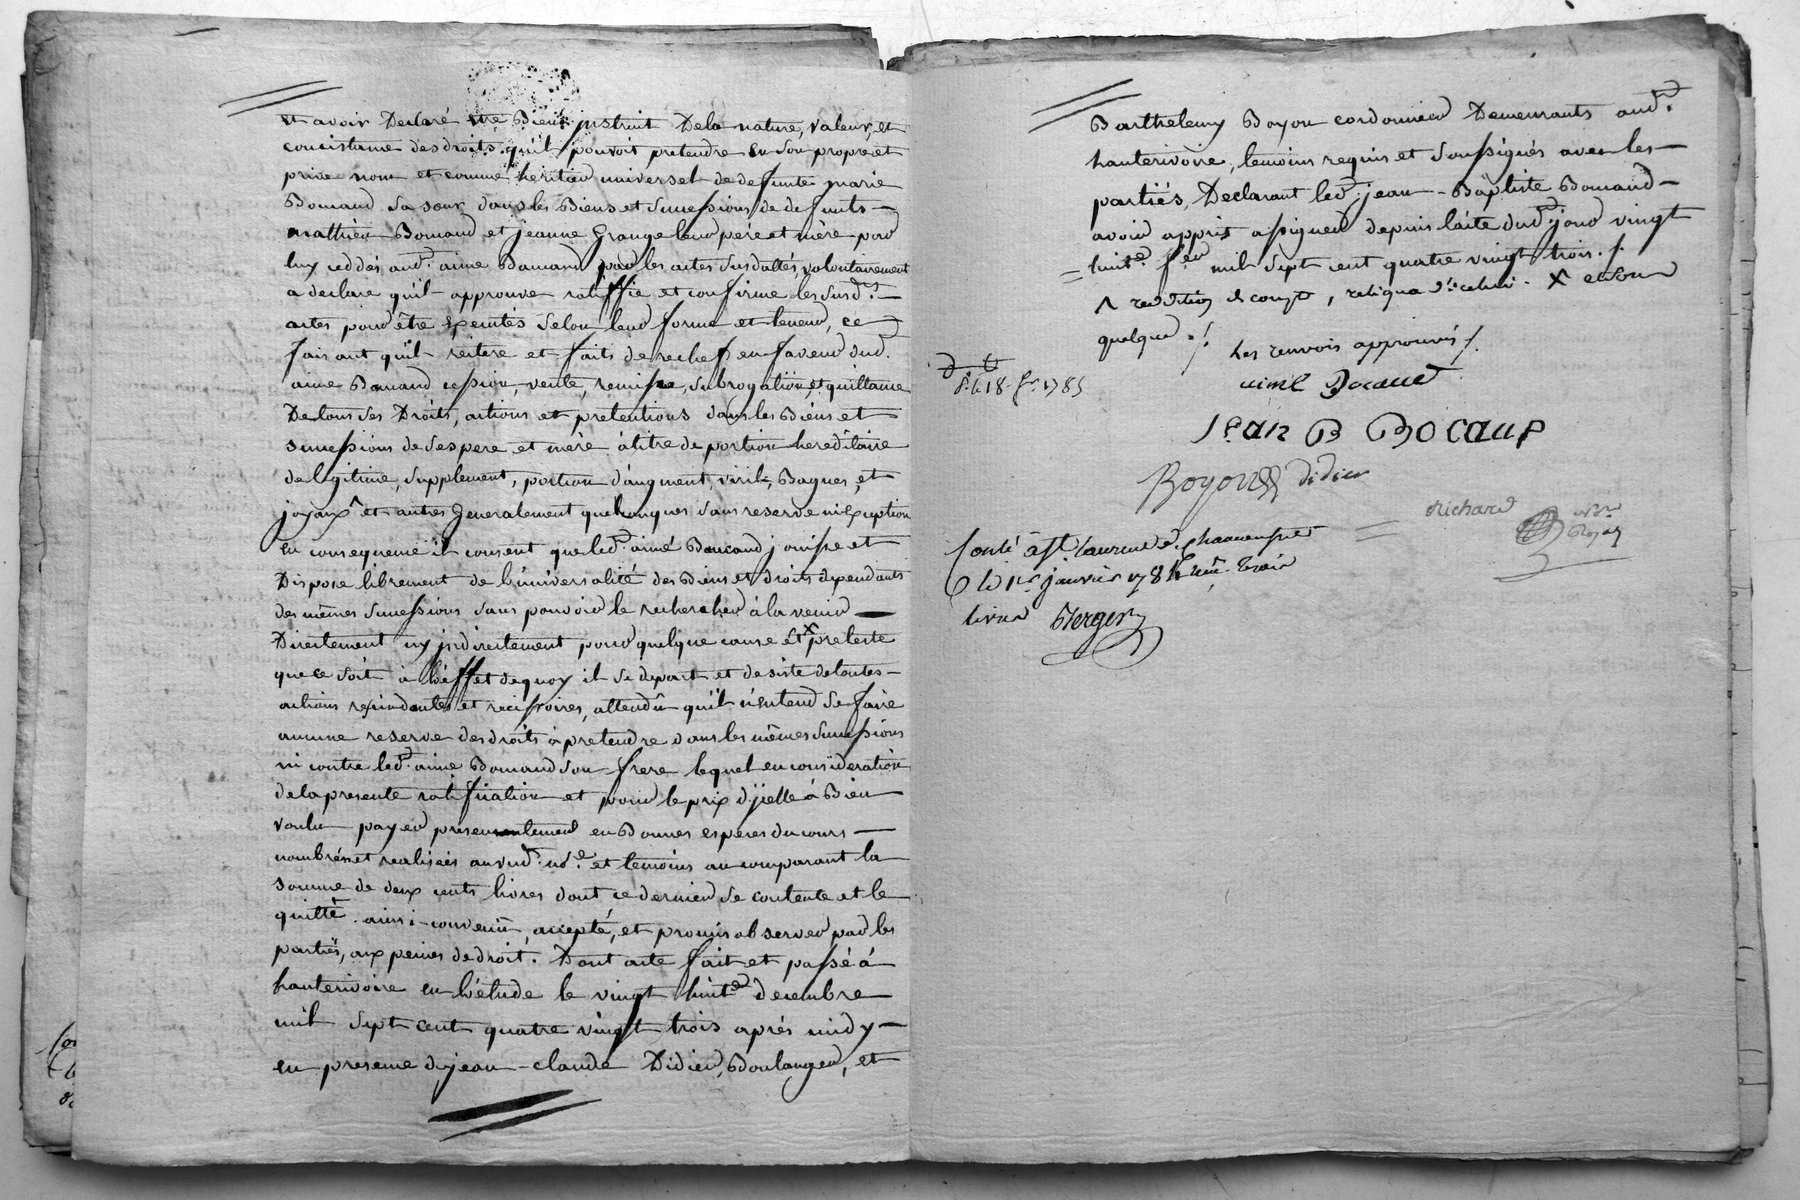 et avoir Declaré etre Bien jnstruit Dela nature, valeur, et
concistance des droits qu'il pouvoit pretendre en son propre et
privé nom et comme heritier universel de defunte marie
Bomand sa sœur dans les Biens et successions de defunts
mathieu Bomand et jeanne Grange leur pere et mère pour
luy ceddés aud. aime Bomand par les actes susdattés, volontairement
a declare qu'il approuve ratiffie et confirme les susd.ts
actes pour être executés selon leur forme et teneur, ce
faisant qu'il reitere et faits derechef en faveur dud.
aime Bomand cession, vente, remisse, subrogation, et quittance
De tous ses Droits, actions et pretentions dans les Biens et
successions de ses pere et mère à titre de portion hereditaire
de legitime, supplement, portion d'augment, virile, Bagues, et
joyaux ^ et autres Generalement quelconques sans reserve ni exception
En consequence il consent que led. aimé Boucand jouisse et
Dispose librement de l'universalité des Biens et droits dependants
des mêmes successions sans pouvoir le rechercher à la venir
Directement ny jndirectement pour quelque cause et x pretexte
que ce soit à l'éffet de quoy il se depart et desiste de toutes
actions rescindantes et recissoires, attendû qu'il n'entend se faire
aucune reserve des droits à pretendre dans les mêmes successions
ni contre led. aime Bomand son frere lequel en considération
de la presente ratification et pour le prix d'jcelle à Bien
voulu payer presentement en Bonnes especes du cours
nombrées et realisées au vu d. no.re et temoins au comparant la
somme de deux cents livres dont ce dernier se contente et le
quitte. ainsi convenû, accepté, et promis observer par les
parties, aux peines de droit. Dont acte fait et passé à
hauterivoire en l'étude le vingt huit.e decembre
mil sept cent quatre vingt trois après midy
en presence de jean-claude Didier, Boulanger, et
Barthelemy Boyon cordonnier Demeurants aud.
hauterivoire, temoins requis et soussignés avec les
parties, Declarant led. jean-Baptiste Bomand
avoir appris a signer depuis l'acte dud. jour vingt
huit.e f.er mil sept cent quatre vingt trois ./.
^ reddition de compte, reliqua d'icelui. X
quelque ./.
Les renvois approuvés /.
aimé Bocand
Jean B BOCAUP
Boyon didier
Richard
d. 18 f.r 1785
Conlé à St Laurent de Chamousset
le 1er janvier 1784 Reçu trois
livres Verger